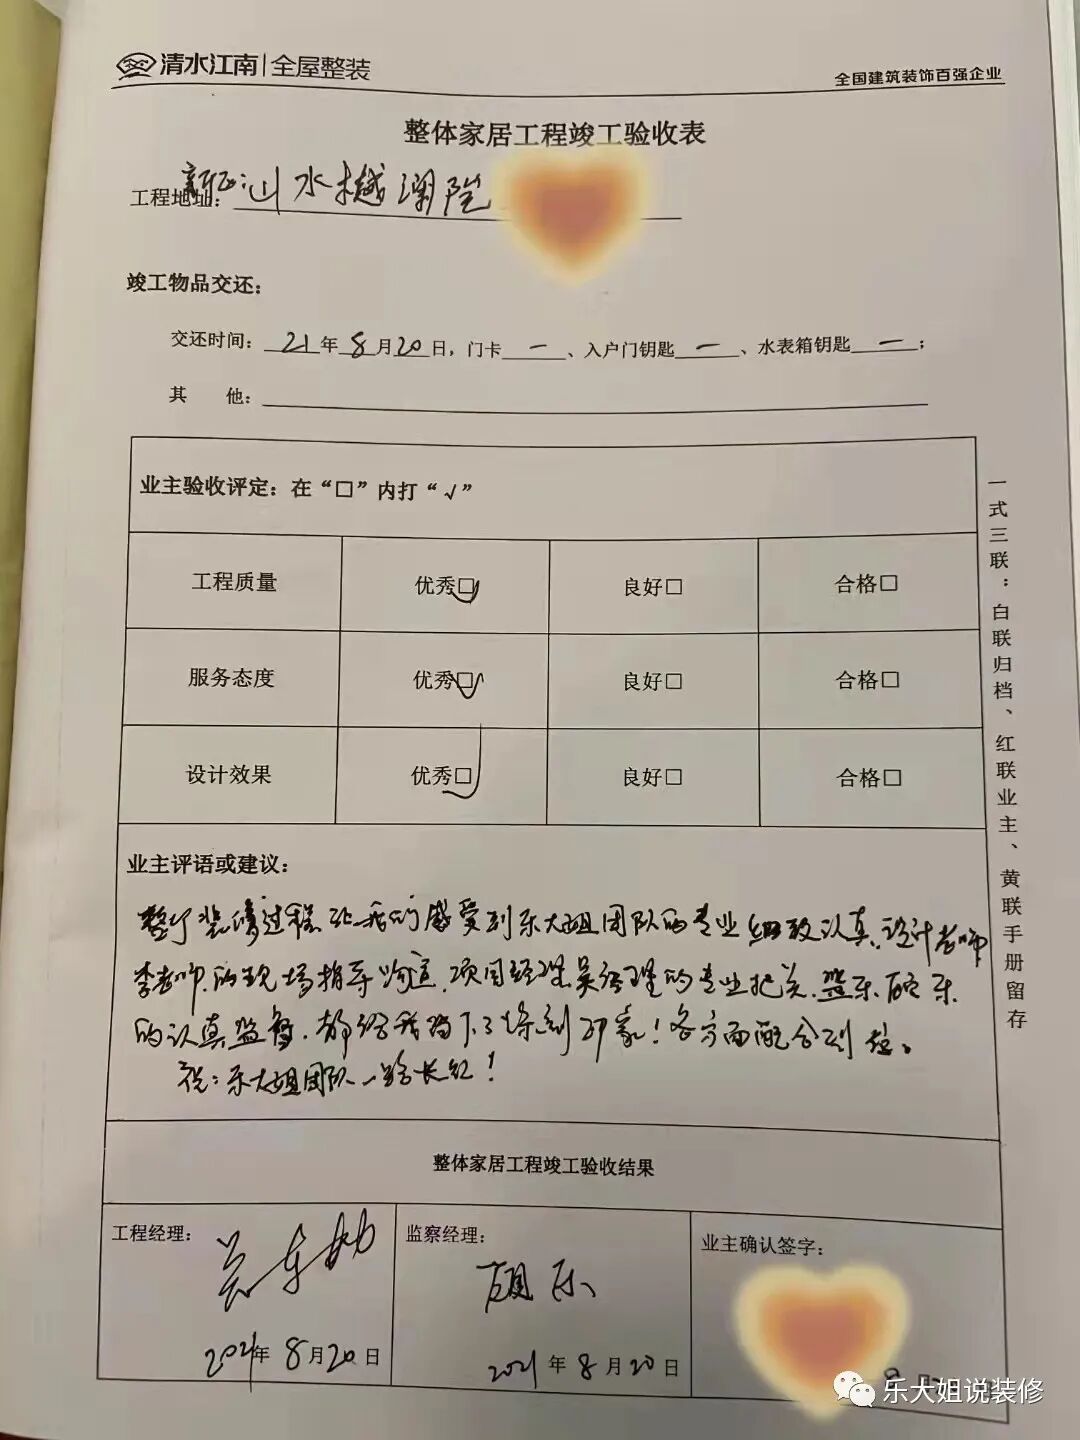 清水江南|全屋整装
全国建筑装饰百强企业
整体家居工程竣工验收表
工程地址：新区：山水樾澜院
竣工物品交还：
交还时间：21年8月20日，门卡一、入户门钥匙一、水表箱钥匙一；
其 他：
业主验收评定：在“□”内打“√”
工程质量 优秀□√ 良好□ 合格□
服务态度 优秀□√ 良好□ 合格□
设计效果 优秀□√ 良好□ 合格□
一式三联：白联归档、红联业主、黄联手册留存
业主评语或建议：
整个装修过程让我们感受到乐大姐团队的专业细致认真、设计老师
李老师的现场指导沟通、项目经理吴经理的专业把关、监乐顾乐
的认真监督，都给我留下了深刻印象！各方面配合到位。
祝：乐大姐团队一路长红！
整体家居工程竣工验收结果
工程经理： 监察经理： 业主确认签字：
顾乐
2021年8月20日 2021年8月20日
乐大姐说装修